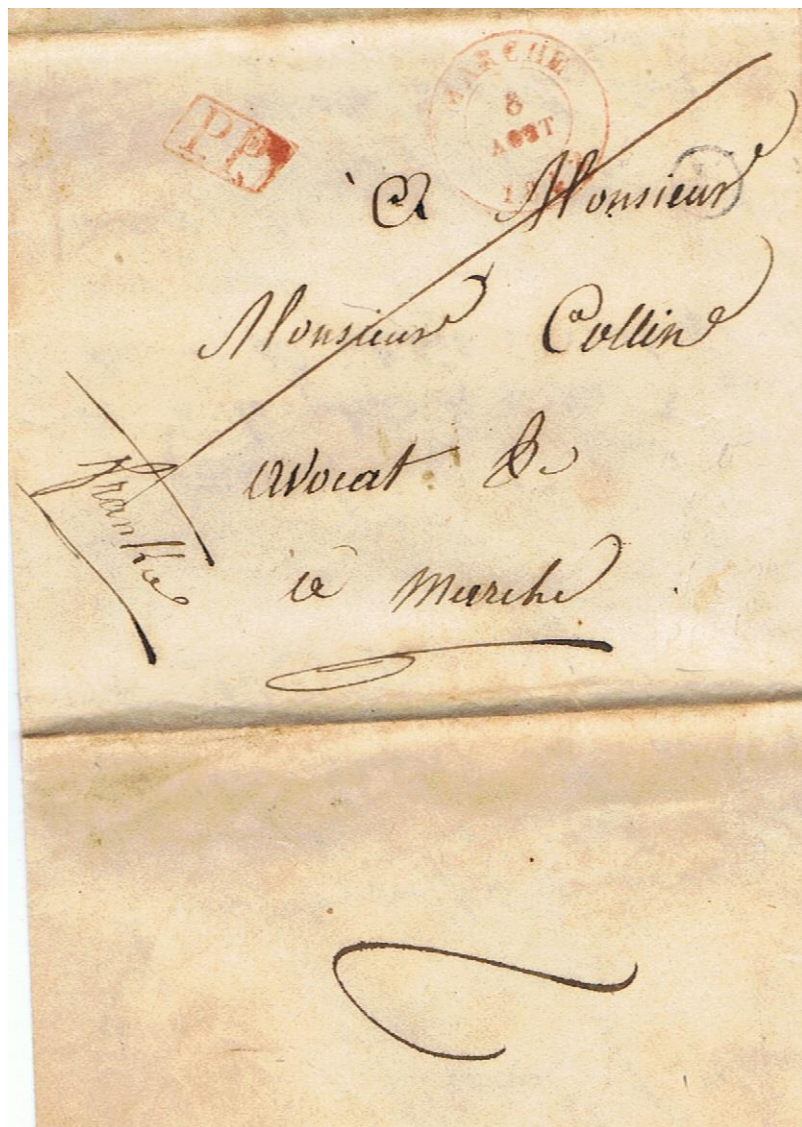 MARCHE
8
AOUT
P.P.
à Monsieur
Monsieur Collin
avocat &c
à Marche
franche